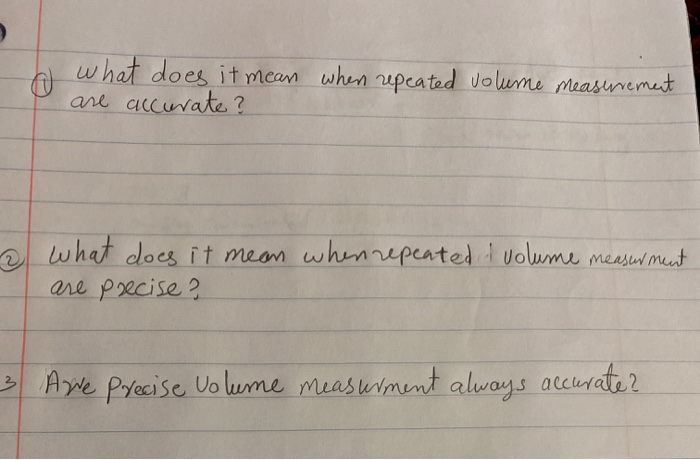 ① what does it mean when repeated volume measurement
are accurate?
② what does it mean when repeated volume measurment
are precise?
3 Are precise volume measurment always accurate?